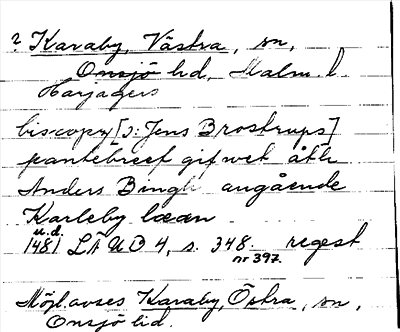 ? Karaby, Västra, sn,
Onsjö hd, Malm. l.
Harjagers
biscopp [ɔ: Jens Brostrups]
pantebreef gifwet åth
Anders Bingh angående
Karleby læen
u.d.
1481 LÄUB 4, s. 348. regest
nr 397.
Möjl. avses Karaby, Östra, sn,
Onsjö hd.